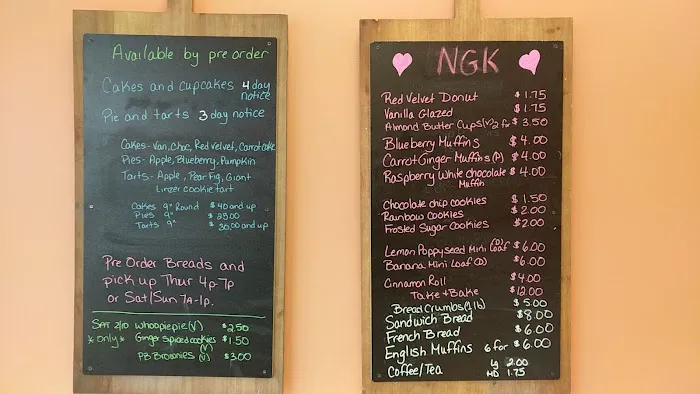 Available by pre order
Cakes and cupcakes 4 day
notice
Pie and tarts 3 day notice
Cakes - Van, Choc, Red velvet, Carrot cake
Pies - Apple, Blueberry, Pumpkin
Tarts - Apple, Pear Fig, Giant
Linzer cookie tart
Cakes 9" Round $40 and up
Pies 9" $25.00
Tarts 9" $30.00 and up
Pre Order Breads and
pick up Thur 4p-7p
or Sat/Sun 7A-1p.
Sat 2/10 whoopie pie (V) $2.50
*only* Ginger Spiced cookies $1.50
(V)
PB Brownies (V) $3.00
NGK
Red Velvet Donut $1.75
Vanilla Glazed $1.75
Almond Butter Cups (V) 2 for $3.50
Blueberry Muffins $4.00
Carrot Ginger Muffins (A) $4.00
Raspberry White chocolate $4.00
Muffin
Chocolate chip cookies $1.50
Rainbow cookies $2.00
Frosted Sugar Cookies $2.00
Lemon Poppyseed Mini Loaf (D) $6.00
Banana Mini Loaf (D) $6.00
Cinnamon Roll $4.00
Take & Bake $12.00
Bread Crumbs (1 lb) $5.00
Sandwich Bread $8.00
French Bread $6.00
English Muffins 6 for $6.00
Coffee/Tea Lg 2.00
MD 1.75